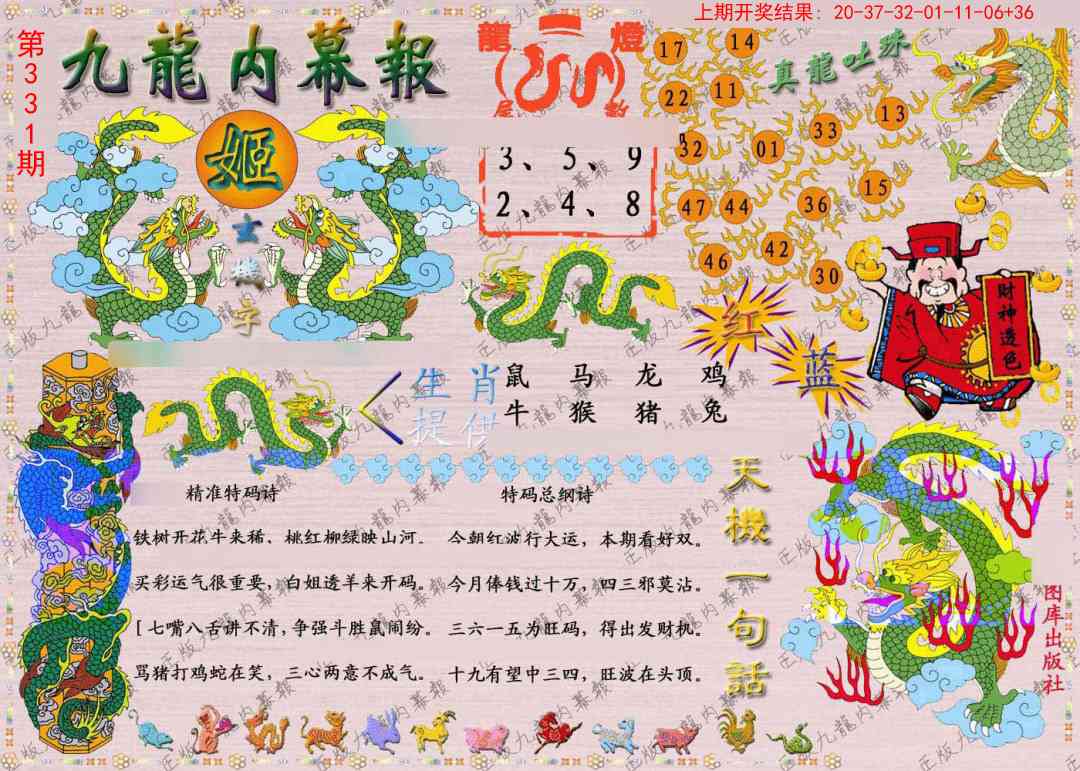 上期开奖结果: 20-37-32-01-11-06+36
第331期
九龍内幕報
龍燈
尾数
真龍吐珠
17 14
22 11
33 13
32 01
15
47 44 36
42
46 30
姬
玄
機
字
3、5、9
2、4、8
财神造色
红
蓝
生肖提供
鼠 马 龙 鸡
牛 猴 猪 兔
精准特码诗
铁树开花牛来稀、桃红柳绿映山河.
买彩运气很重要, 白姐透羊来开码。
[七嘴八舌讲不清,争强斗胜鼠闹纷。
骂猪打鸡蛇在笑, 三心两意不成气。
特码总纲诗
今朝红波行大运, 本期看好双。
今月俸钱过十万, 四三邪莫沾。
三六一五为旺码, 得出发财机。
十九有望中三四, 旺波在头顶。
天機一句話
图库出版社
正版九龍内幕報